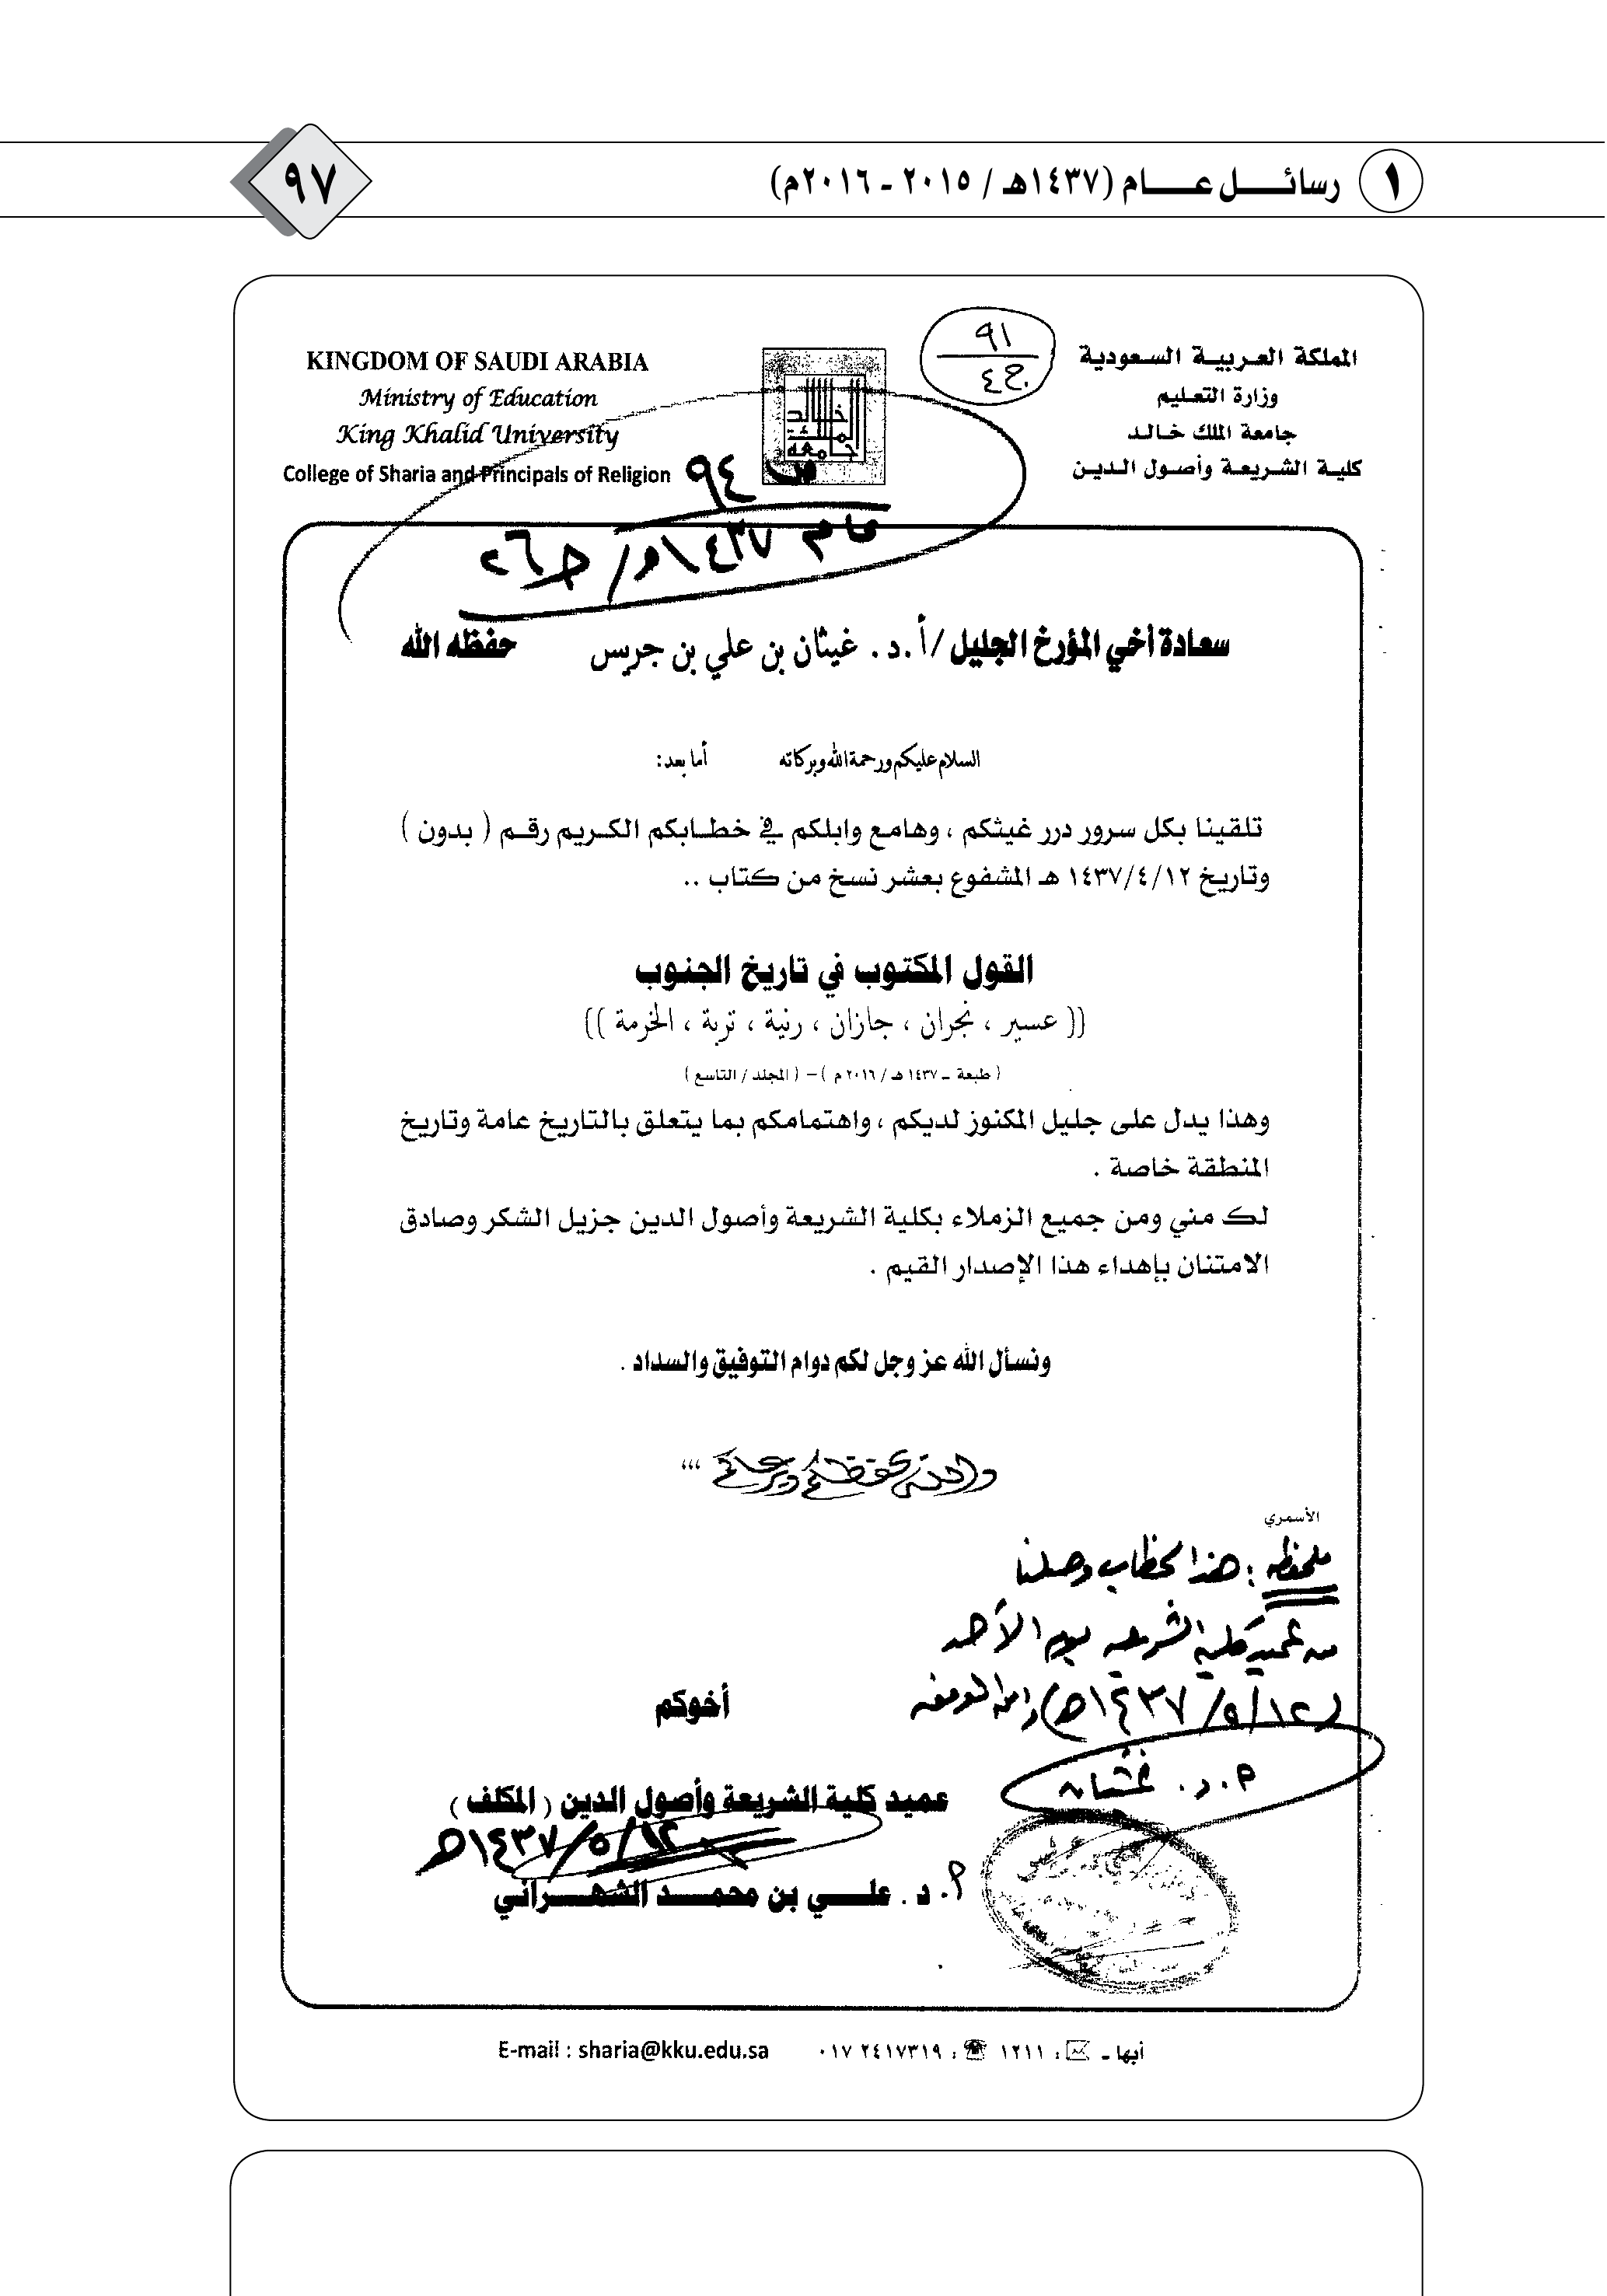 ١ رسائـــل عـــام (١٤٣٧هـ / ٢٠١٥ ـ ٢٠١٦م)
٩٧
المملكة العربية السعودية
وزارة التعليم
جامعة الملك خالد
كلية الشريعة وأصول الدين
٩١
ج٤
KINGDOM OF SAUDI ARABIA
Ministry of Education
King Khalid University
College of Sharia and Principals of Religion
٩٤
عام ١٤٣٧هـ / ج٢٦
سعادة أخي المؤرخ الجليل / أ.د. غيثان بن علي بن جريس حفظه الله
السلام عليكم ورحمة الله وبركاته أما بعد:
تلقينا بكل سرور درر غيثكم ، وهامع وابلكم في خطابكم الكريم رقم ( بدون )
وتاريخ ١٤٣٧/٤/١٢ هـ المشفوع بعشر نسخ من كتاب ..
القول المكتوب في تاريخ الجنوب
(( عسير ، نجران ، جازان ، رنية ، تربة ، الخرمة ))
( طبعة ـ ١٤٣٧ هـ / ٢٠١٦ م ) – ( المجلد / التاسع )
وهذا يدل على جليل المكنوز لديكم ، واهتمامكم بما يتعلق بالتاريخ عامة وتاريخ
المنطقة خاصة .
لك مني ومن جميع الزملاء بكلية الشريعة وأصول الدين جزيل الشكر وصادق
الامتنان بإهداء هذا الإصدار القيم .
ونسأل الله عز وجل لكم دوام التوفيق والسداد .
والله يحفظكم ويرعاكم ،،،
الأسمري
ملحظه : هذا الخطاب وصلنا
من عميد كلية الشريعة يوم الأحد
(١٢/٥/١٤٣٧هـ) والله الموفق
أ.د. غيثان
أخوكم
عميد كلية الشريعة وأصول الدين ( المكلف )
١٢/٥/١٤٣٧هـ
أ. د . علـــي بن محمـــد الشهـــراني
أبها ـ : ١٢١١ : ٠١٧ ٢٤١٧٣١٩ E-mail : sharia@kku.edu.sa